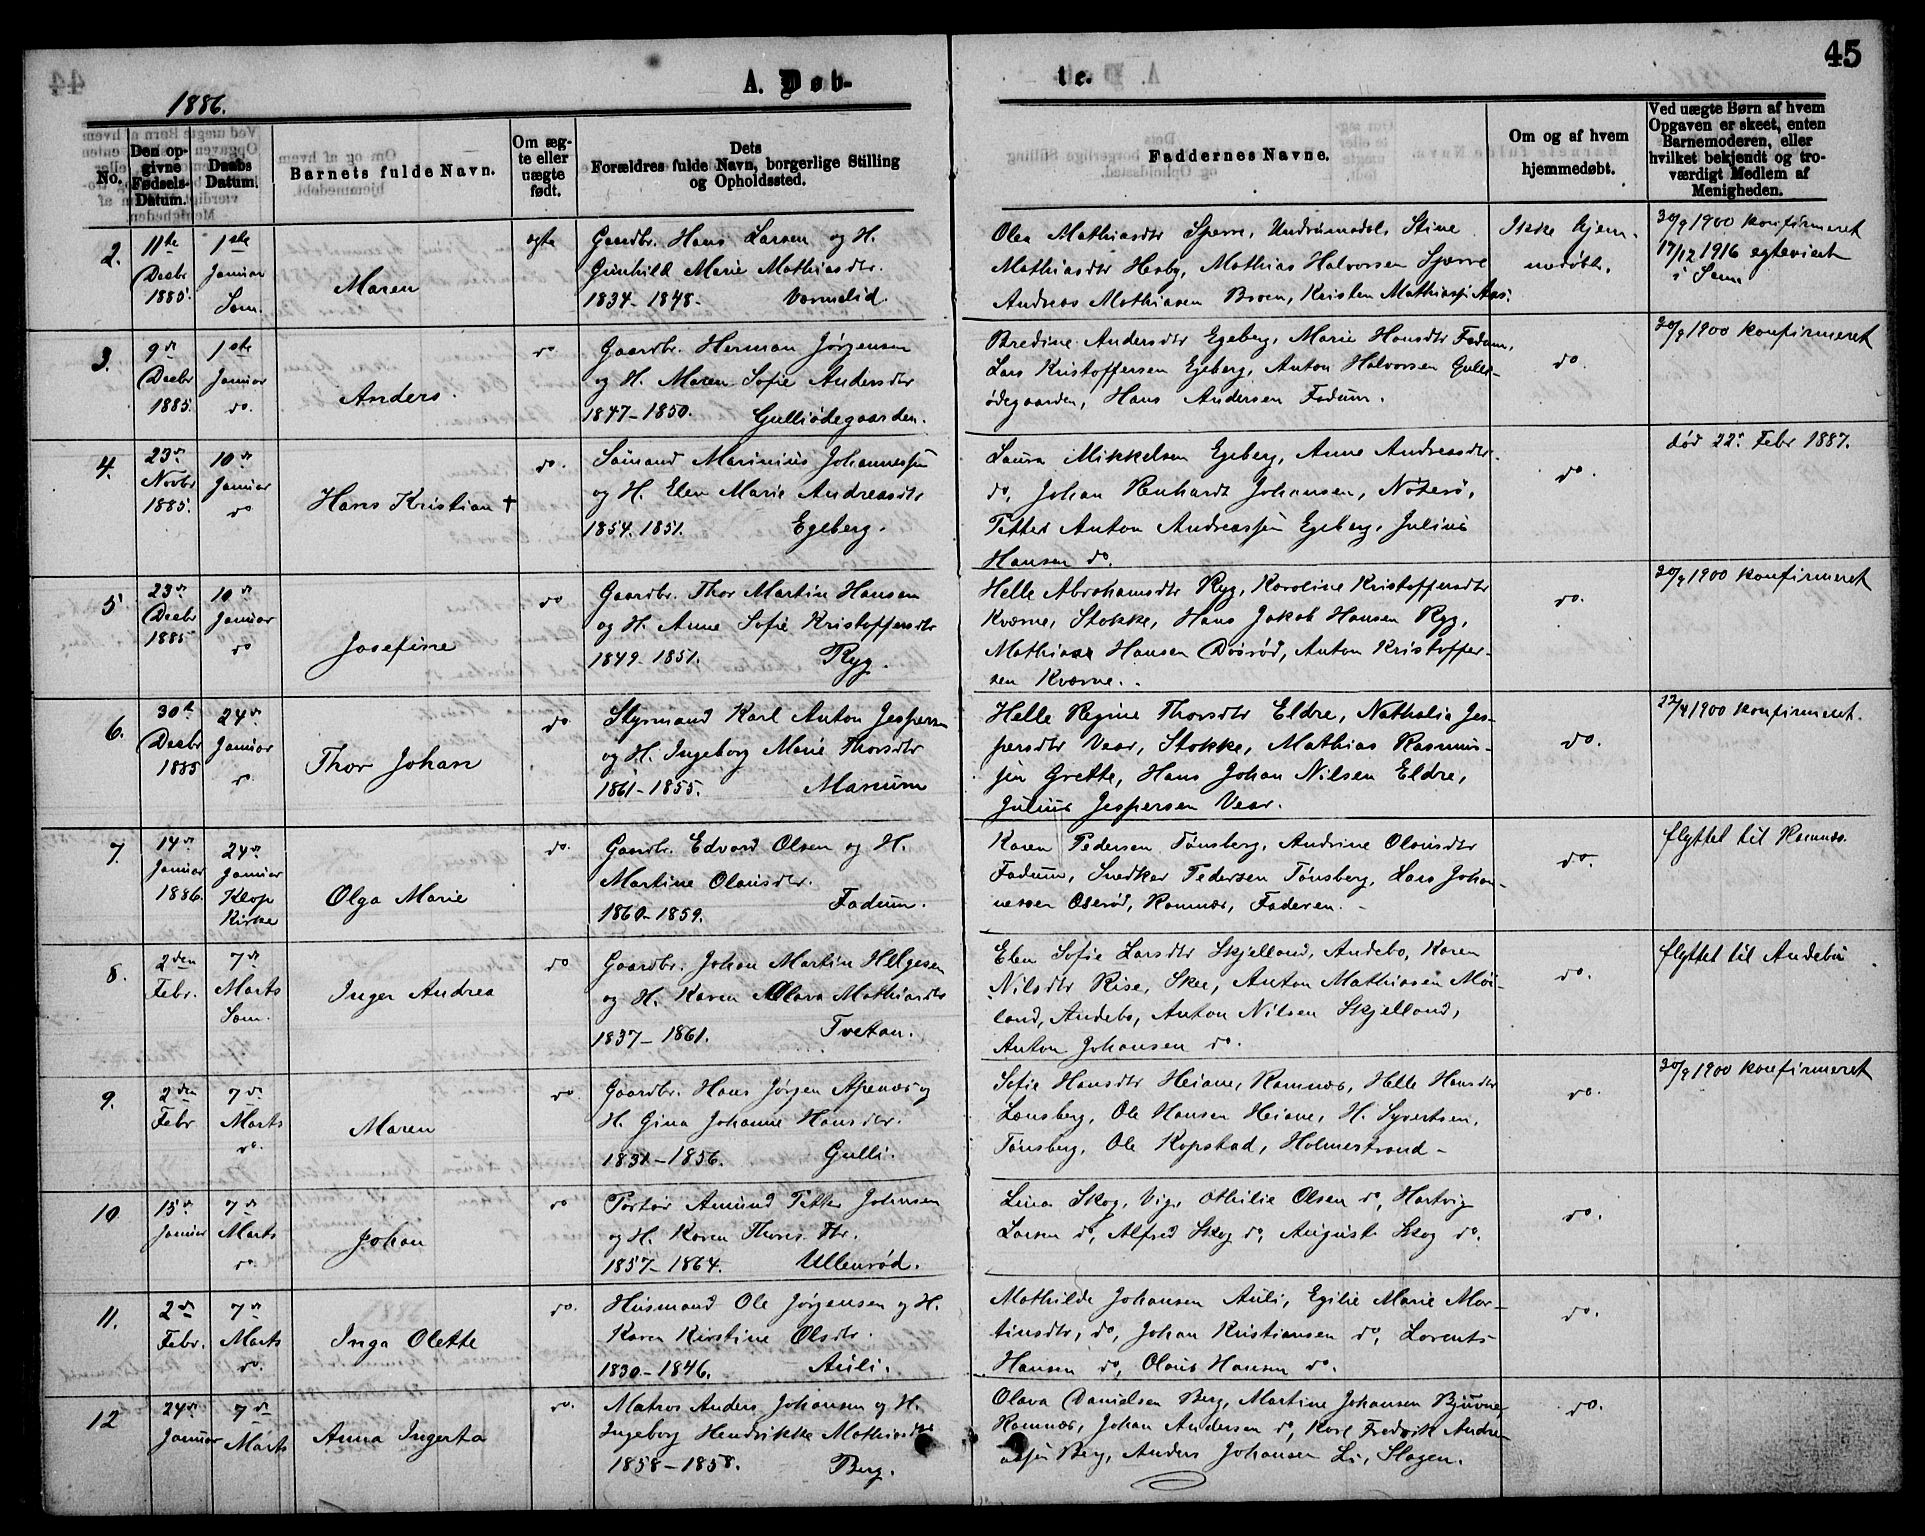 45
1886.
A. Døb-
te.
No.
Den op-
givne
Fødsels-
Datum.
Daabs
Datum.
Barnets fulde Navn.
Om æg-
te eller
uægte
født.
Dets
Forældres fulde Navn, borgerlige Stilling
og Opholdssted.
Faddernes Navne.
Om og af hvem
hjemmedøbt.
Ved uægte Børn af hvem
Opgaven er skeet, enten
Barnemoderen, eller
hvilket bekjendt og tro-
værdigt Medlem af
Menigheden.
2.
11te
Decbr
1885.
1ste
Januar
Sem.
Maren
egte
Gaardbr. Hans Larsen og H.
Gunhild Marie Mathiasdtr.
1834-1848. Vormelid.
Olea Mathiasdtr Sperre, Undrumsdal, Stine
Mathiasdtr Hesby, Mathias Halvorsen Sperre
Andreas Mathiasen Broen, Kristen Mathiass. Aas.
Ikke hjem-
medøbt.
30/9 1900 konfirmeret
17/12 1916 egteviet
i Sem
3.
9de
Decbr
1885.
1ste
Januar
do.
Anders.
do
Gaardbr. Herman Jørgensen
og H. Maren Sofie Andersdtr
1847-1850. Gulliødegaarden.
Bredine Andersdtr Egeberg, Marie Hansdtr Fadum,
Lars Kristoffersen Egeberg, Anton Halvorsen Gulli-
ødegaarden, Hans Andersen Fadum.
do.
30/9 1900 konfirmeret
4.
23de
Novbr
1885.
10de
Januar
do
Hans Kristian †
do.
Sømand Marinius Johannessen
og H. Elen Marie Andreasdtr
1854. 1851. Egeberg.
Laura Mikkelsen Egeberg, Anne Andreasdtr.
do, Johan Renhardt Johansen, Nøterø,
Petter Anton Andreassen Egeberg, Julius
Hansen do.
do.
død 22. Febr 1887.
5
23de
Decbr
1885
10de
Januar
do
Josefine
do
Gaardbr. Thor Martin Hansen
og H. Anne Sofie Kristoffersdtr
1849-1851. Ryg.
Helle Abrahamsdtr Ryg, Karoline Kristoffersdtr
Kværne, Stokke, Hans Jakob Hansen Ryg,
Mathias Hansen Døsrød, Anton Kristoffer-
sen Kværne.
do.
30/9 1900 konfirmeret
6.
30te
Decbr
1885
24de
Januar
do.
Thor Johan
do
Styrmand Karl Anton Jespersen
og H. Ingeborg Marie Thorsdtr
1861-1855. Marium
Helle Regine Thorsdtr Eldre, Nathalia Jes-
persdtr Vear, Stokke, Mathias Rasmus-
sen Grette, Hans Johan Nilsen Eldre,
Julius Jespersen Vear.
do.
22/4 1900 konfirmeret.
7.
14de
Januar
1886.
24de
Januar
Klop
Kirke
Olga Marie
do.
Gaardbr. Edvard Olsen og H.
Martine Olausdtr.
1860-1859. Fadum.
Karen Pedersen Tønsberg, Andrine Olausdtr
Fadum, Snedker Pedersen Tønsberg, Lars Johan-
nessen Oserød, Ramnæs, Faderen.
do.
flyttet til Ramnæs.
8.
2den
Febr.
7de
Marts
Sem.
Inger Andrea
do
Gaardbr. Johan Martin Helgesen
og H. Karen Olava Mathiasdtr
1837-1861. Tvetan.
Elen Sofie Larsdtr Skjelland, Andebo, Karen
Nilsdtr Rise, Skee, Anton Mathiasen Møi-
land, Andebo, Anton Nilsen Skjelland,
Anton Johansen do.
do.
flyttet til Andebu
9.
2den
Febr.
7de
Marts
do.
Maren
do.
Gaardbr. Hans Jørgen Apenæs og
H. Gina Johanne Hansdtr.
1831-1856. Gulli.
Sofie Hansdtr Heiane, Ramnæs, Helle Hansdtr
Lensberg, Ole Hansen Heiane, H. Syvertsen,
Tønsberg, Ole Kopstad, Holmestrand-
do.
30/9 1900 konfirmeret
10
15de
Januar
7de
Marts
do.
Johan
do
Amund Petter Johnsen
og H. Karen Thorine
1857-1864. Ullenrød.
Lina Skog, Vig, Othilie Olsen do, Hartvig
Larsen do, Alfred Skog do, August Skog do.
do.
11.
2den
Febr.
7de
Marts
do.
Inga Olette
do.
Husmand Ole Jørgensen og H.
Karen Kirstine Olsdtr.
1830-1846. Auli.
Mathilde Johansen Auli, Egilie Marie Mar-
tinsdtr, do, Johan Kristiansen do, Lorents
Hansen do, Olaus Hansen do.
do.
12
24de
Januar
7de
Marts
Anna Ingerta
do.
Matros Anders Johansen og H.
Ingeborg Hendrikke Mathiasdtr
1858-1858. Berg.
Olava Danielsen Berg, Martine Johansen Bjuvne,
Ramnæs, Johan Andersen do, Karl Fredrik Andre-
assen Berg, Anders Johansen Li, Slagen.
do.